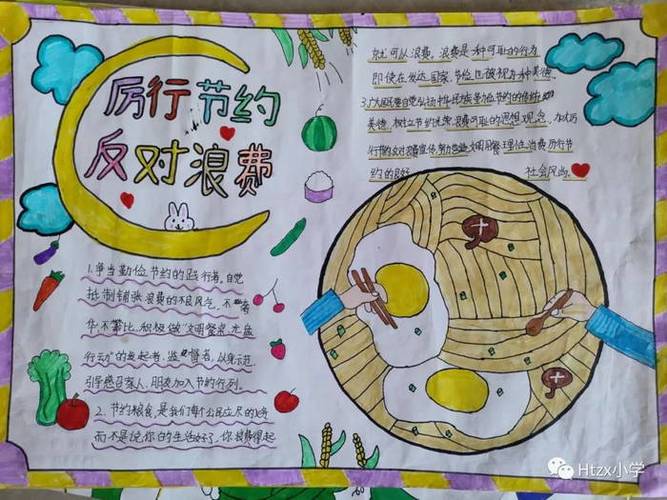 厉行节约
反对浪费
1.争当勤俭节约的践行者。自觉
抵制铺张浪费的不良风气，不奢
华，不攀比，积极做"文明餐桌光盘
行动"的发起者，监督者，以身示范
引导感召家人、朋友加入节约行列。
2、节约粮食，是我们每个公民应尽的义务
而不是说，你的生活好了，你浪费得起
就可以浪费。浪费是一种可耻的行为
即使在发达国家，节俭也被视为种美德。
3.广大居民要自觉弘扬中华民族勤俭节约的传统
美德，树立节约光荣浪费可耻的思想观念，在大力
行节约反对浪费宣传，努力营造文明用餐理性消费厉行节
约的良好 社会风尚。
Htzx小学